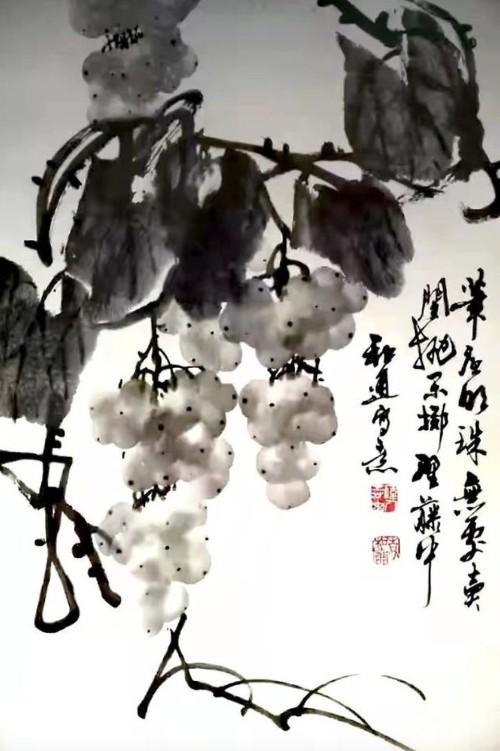 筆底明珠無處賣
閒拋閒擲野藤中
和通寫意